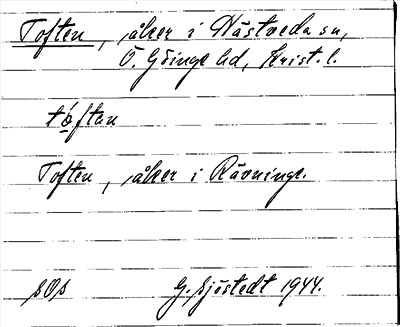 Toften, åker i Hästveda sn,
Ö. Göinge hd, Krist. l.
tóftan
Toften, åker i Rävninge.
sOs G. Sjöstedt 1944.